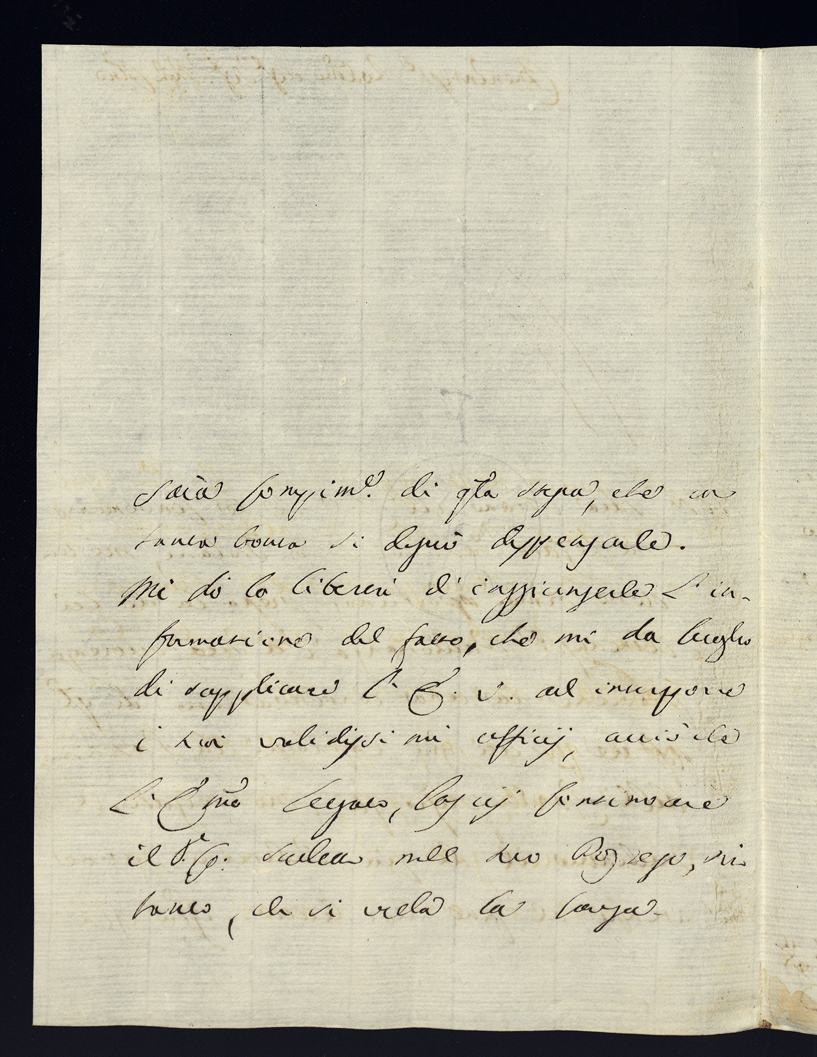 sarà compim.to di q.sta stessa, che con
tanta bontà si degnò dispensarle.
Mi dò la libertà d'inggiungerle l'in-
formazione del fatto, che mi da luogho
di supplicare l'E. V. ad interporre
i suoi validissimi officij, acciò che
l'E.mo Legato, lascij continuare
il S.r Co. nell suo Possesso, sin
tanto, che si veda la causa.